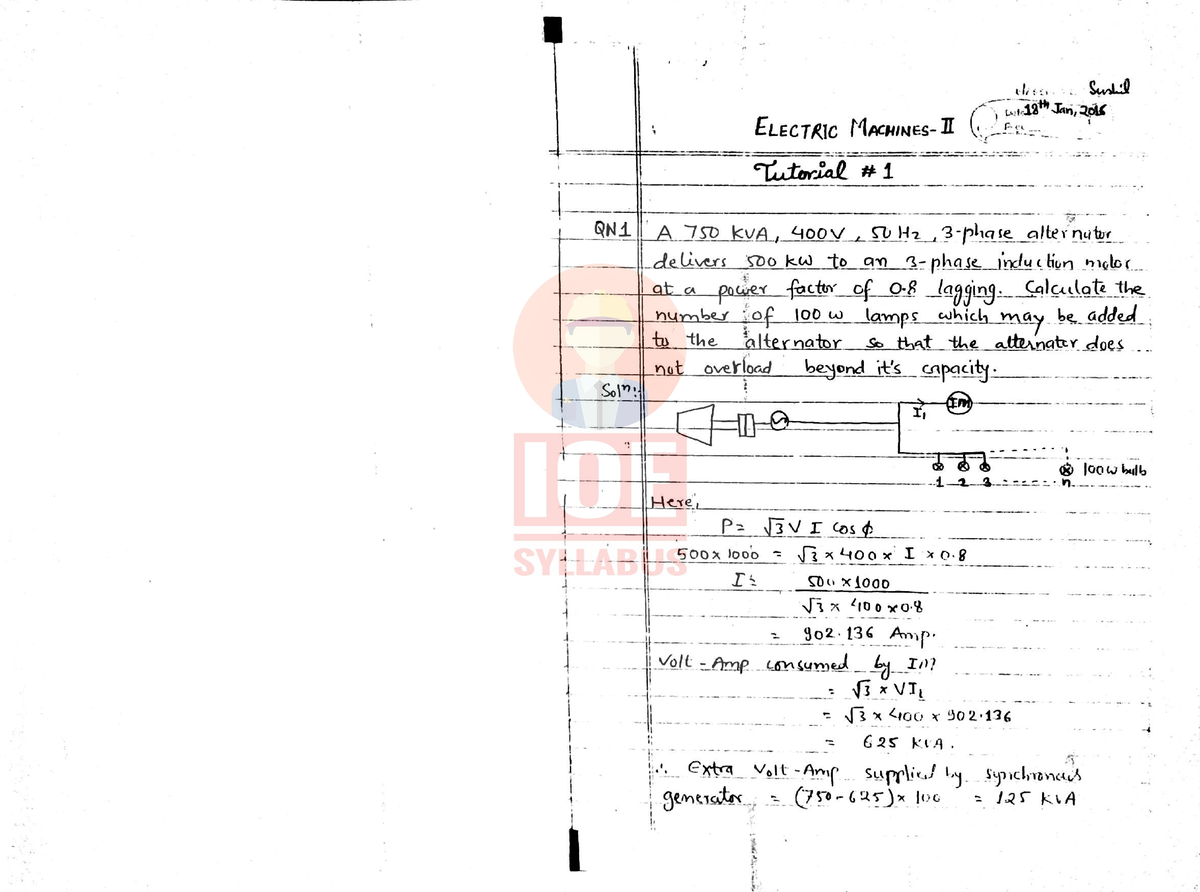 Sushil
18th Jan, 2016
ELECTRIC MACHINES-II
Tutorial # 1
QN1 A 750 KVA, 400V, 50 Hz, 3-phase alternator
delivers 500 kw to an 3-phase induction motor
at a power factor of 0.8 lagging. Calculate the
number of 100 w lamps which may be added
to the alternator so that the alternater does
not overload beyond it's capacity.
Solⁿ:-
I₁ Im
100 w bulb
1 2 3 n
Here,
P = √3 V I Cos ϕ
500 x 1000 = √3 x 400 x I x 0.8
I = 500 x 1000
√3 x 400 x 0.8
= 902.136 Amp.
Volt-Amp consumed by IM
= √3 x VI₁
= √3 x 400 x 902.136
= 625 KVA.
∴ Extra Volt-Amp supplied by synchronous
generator = (750-625) x 100 = 125 KVA
IOE
SYLLABUS